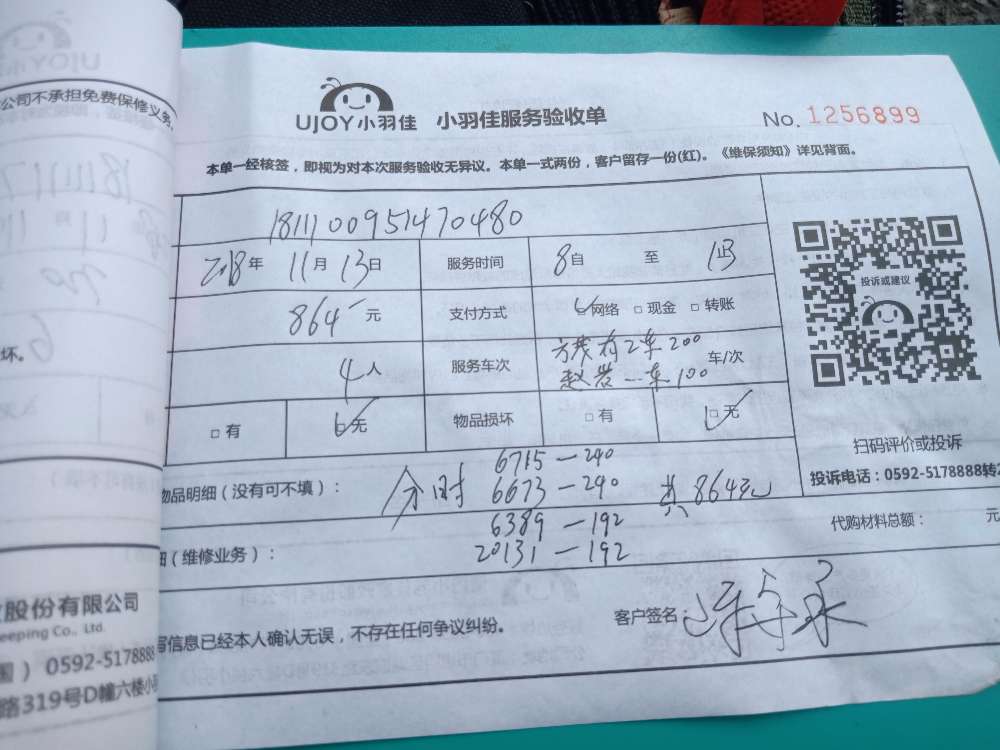 公司不承担免费保修义务。
UJOY小羽佳 小羽佳服务验收单
No. 1256899
本单一经核签，即视为对本次服务验收无异议。本单一式两份，客户留存一份(红)。《维保须知》详见背面。
1811100951470480
2018年 11月 13日 服务时间 8自 至
864元 支付方式 网络 □现金 □转账
4人 服务车次 有2车200 一车100 车/次
□有 无 物品损坏 □有 □无
投诉或建议
扫码评价或投诉
投诉电话：0592-5178888转2
物品明细（没有可不填）：
分时
6715-240
6673-240 共864元
6389-192
20131-192
代购材料总额： 元
细（维修业务）：
客户签名：
写信息已经本人确认无误，不存在任何争议纠纷。
坏。
股份有限公司
eeping Co., Ltd.
国）0592-5178888
路319号D幢六楼小